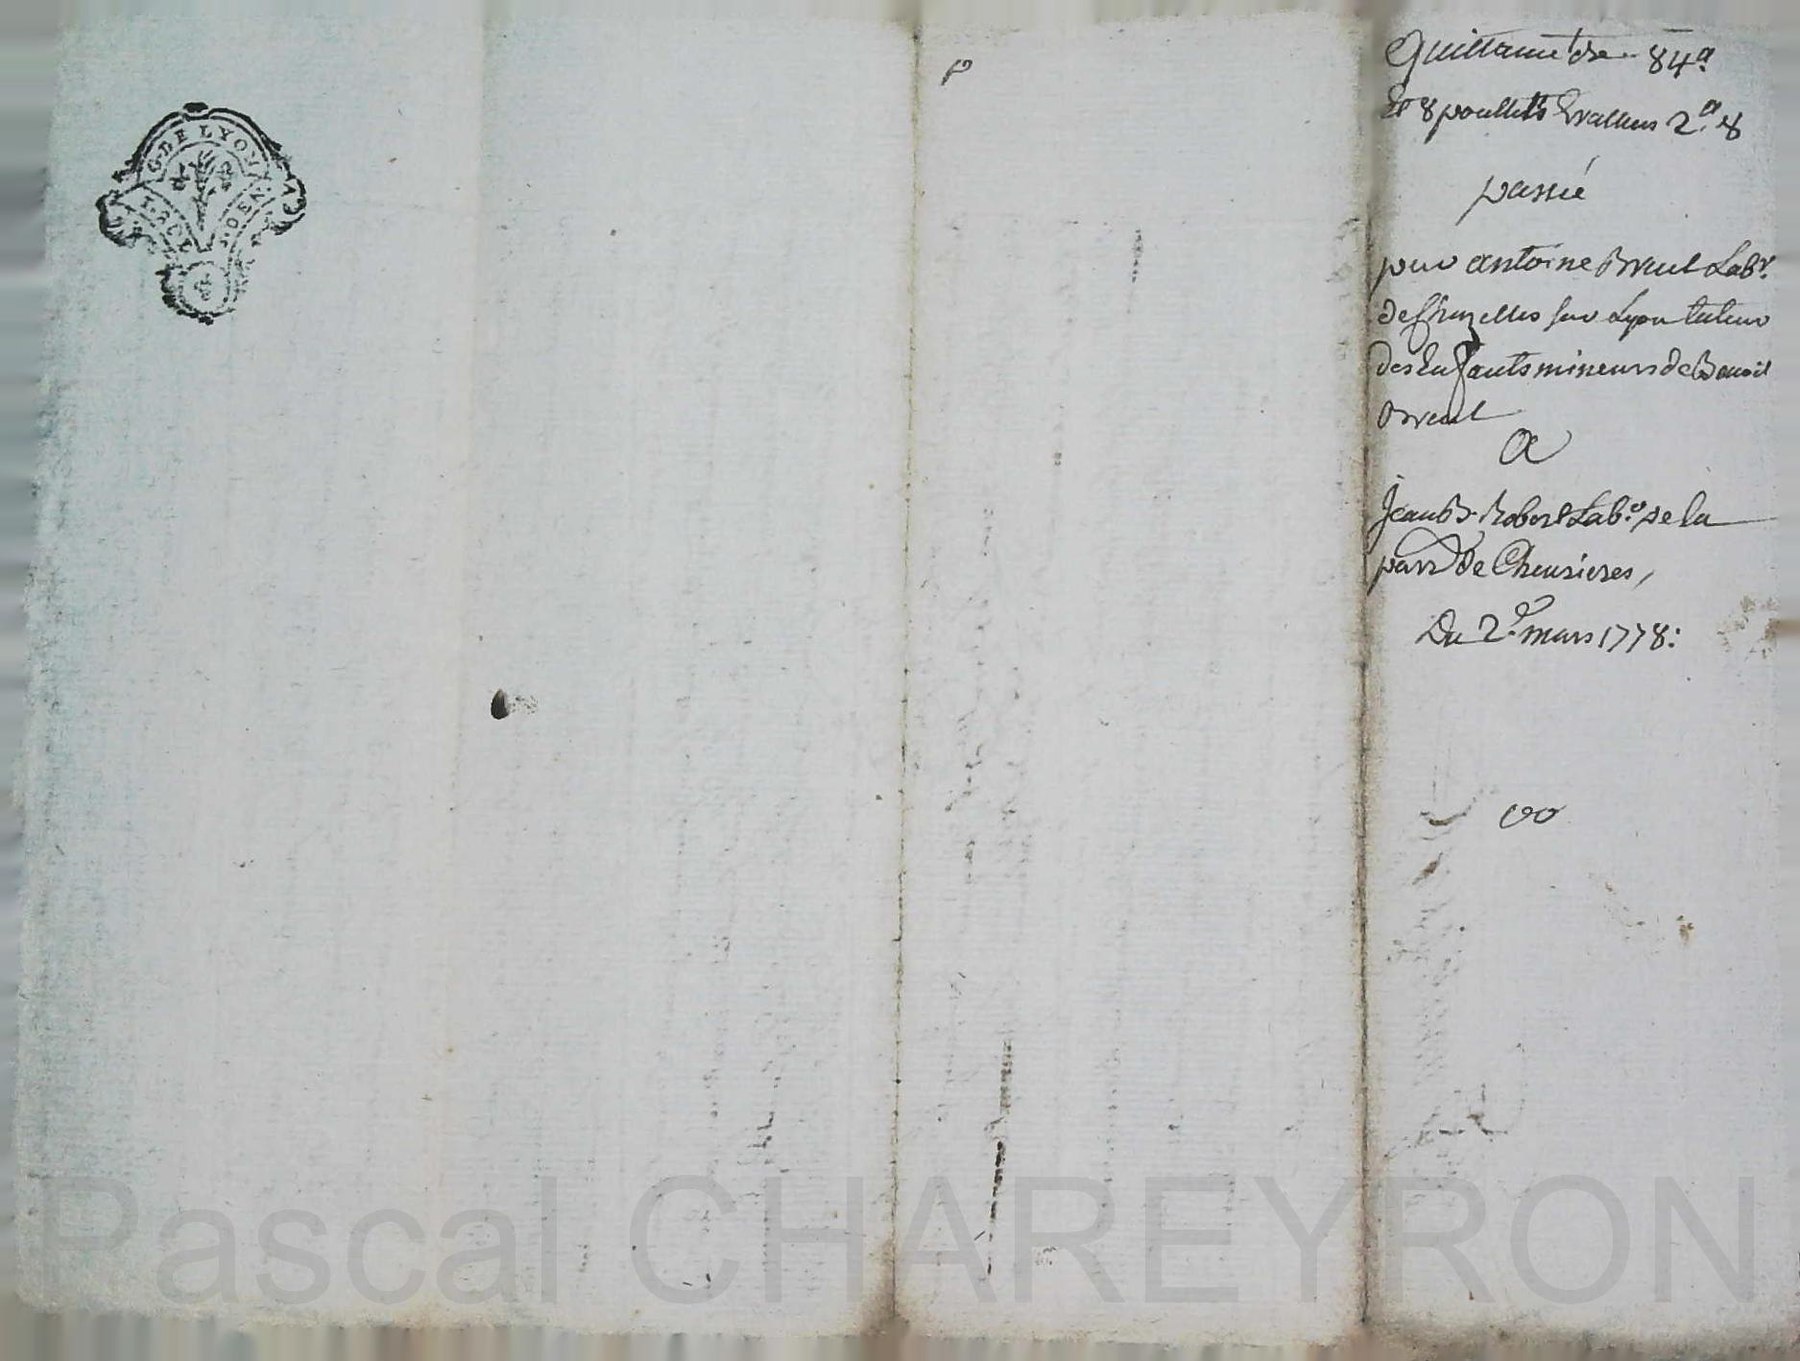 G. DE LYON
2 SOLS
8. DEN.
p
Quittance de 84ᵃ
Et 8 poullets Evallues 2ᵃ 8
passée
par antoine Breul Labʳ.
de Chazelles sur Lyon tuteur
des Enfants mineurs de Benoit
Breul
A
Jean Bᵗ. Robert Labʳ. de la
parr. de Chevrieres,
Du 2ᵉ. mars 1778:
Pascal CHAREYRON